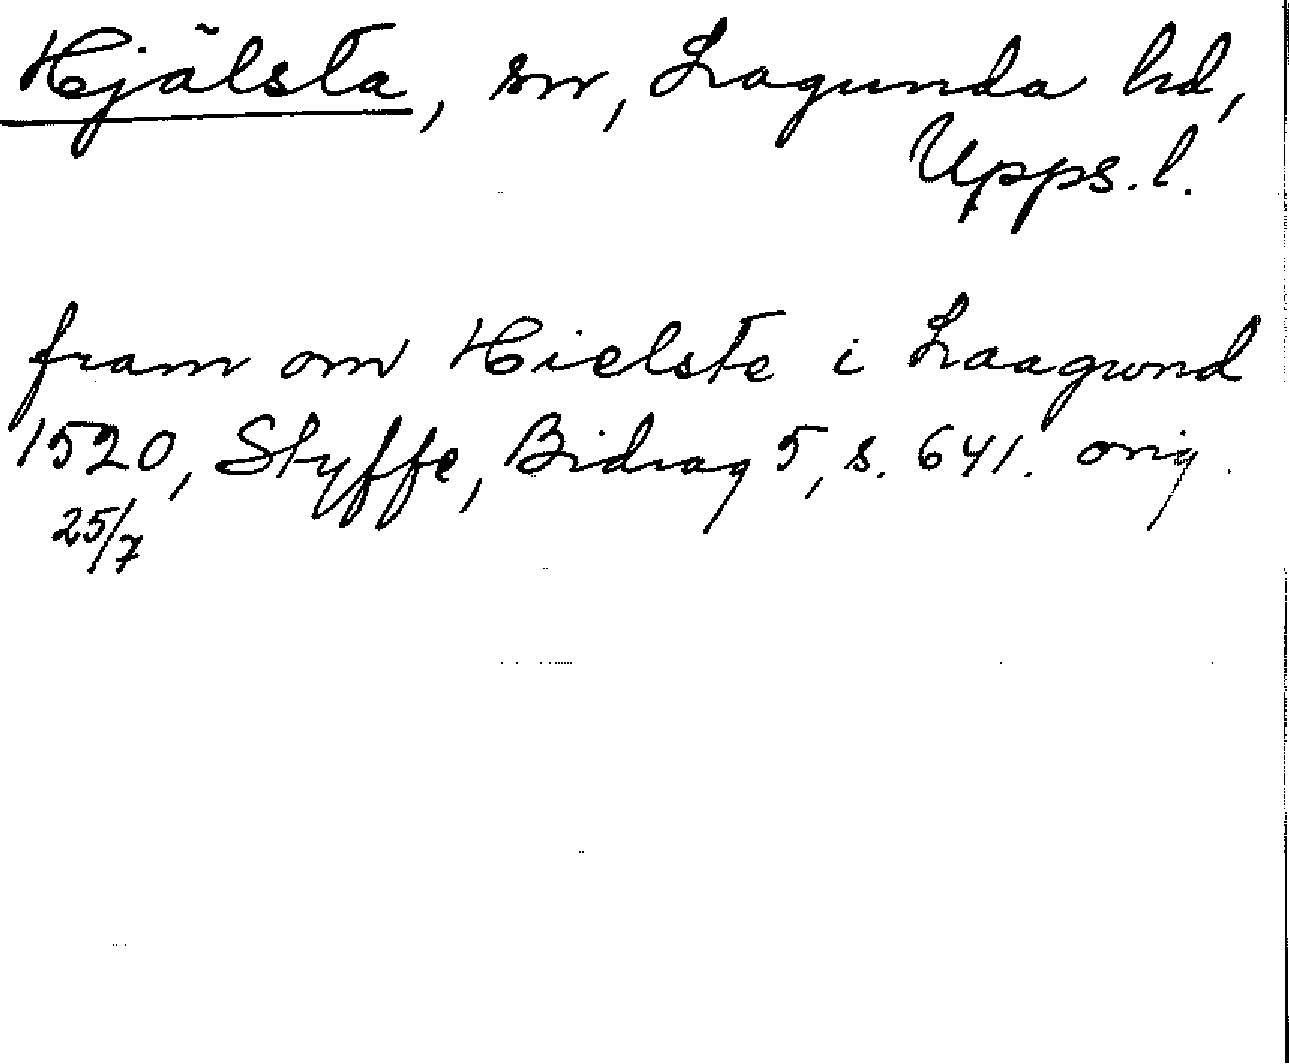 Hjälsta, sn, Lagunda hd,
Upps. l.
fram om Hielste i Laagwnd
1520, Styffe, Bidrag 5, s. 641. orig.
25/7